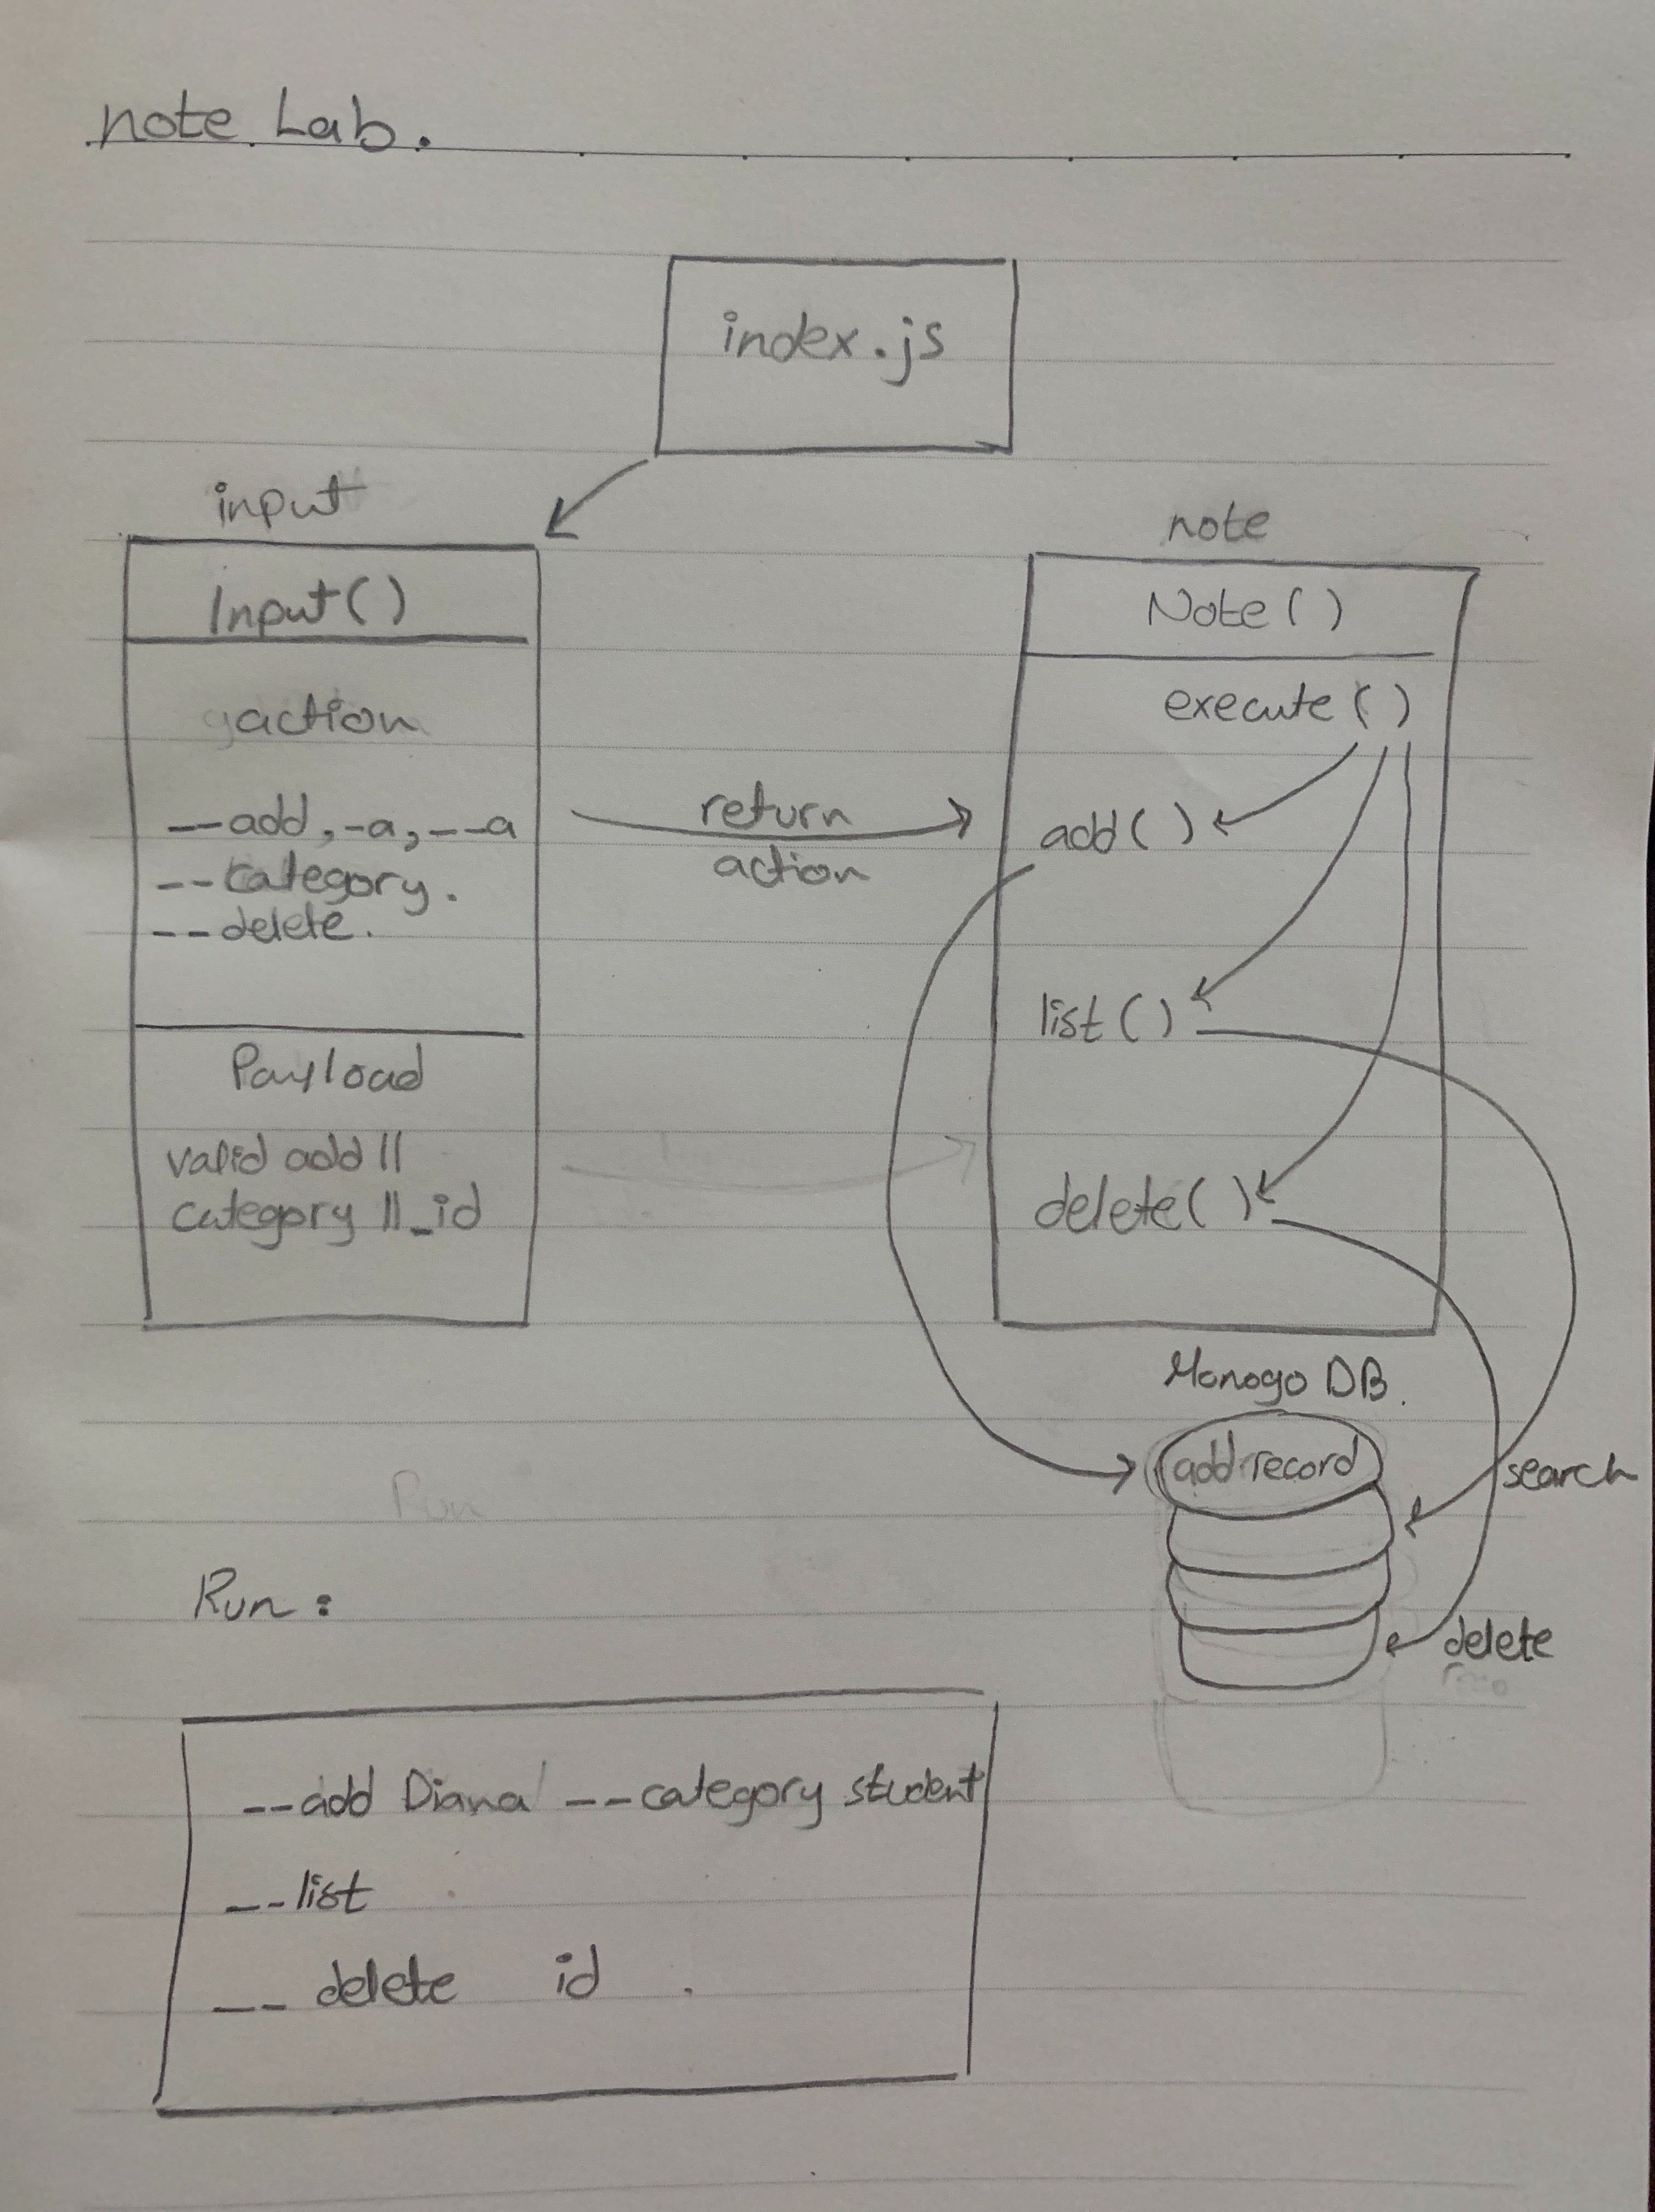 note Lab.
index.js
input
Input()
action
--add, -a, --a
--category.
--delete.
Payload
valid add ||
category ||_id
return
action
note
Note()
execute()
add()
list()
delete()
Monogo DB.
add record
search
delete
Run
Run:
--add Diana --category student
--list
-- delete id .